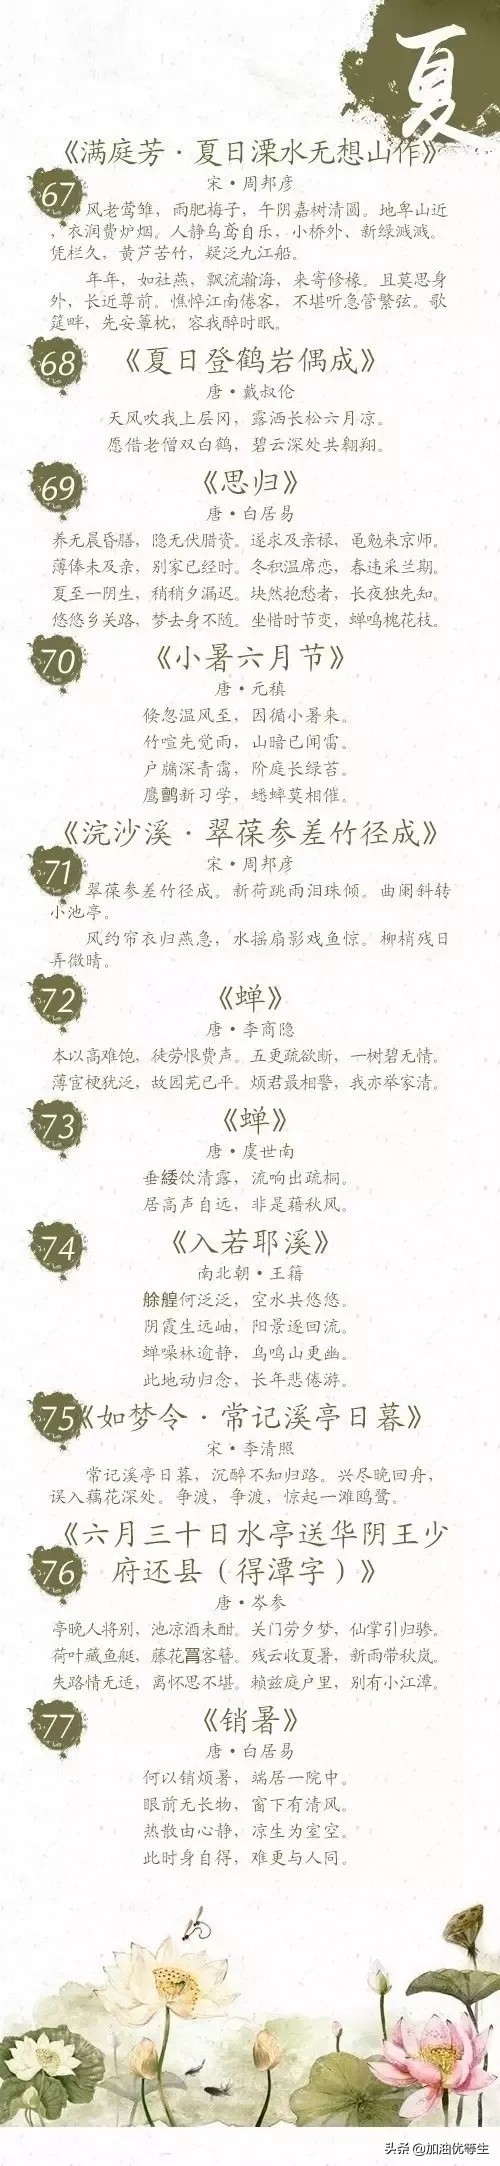 夏
《满庭芳·夏日溧水无想山作》
67
宋·周邦彦
风老莺雏，雨肥梅子，午阴嘉树清圆。地卑山近
，衣润费炉烟。人静乌鸢自乐，小桥外、新绿溅溅。
凭栏久，黄芦苦竹，疑泛九江船。
年年，如社燕，飘流瀚海，来寄修椽。且莫思身
外，长近尊前。憔悴江南倦客，不堪听急管繁弦。歌
筵畔，先安簟枕，容我醉时眠。
68
《夏日登鹤岩偶成》
唐·戴叔伦
天风吹我上层冈，露洒长松六月凉。
愿借老僧双白鹤，碧云深处共翱翔。
69
《思归》
唐·白居易
养无晨昏膳，隐无伏腊资。遂求及亲禄，黾勉来京师。
薄俸未及亲，别家已经时。冬积温席恋，春违采兰期。
夏至一阴生，稍稍夕漏迟。块然抱愁者，长夜独先知。
悠悠乡关路，梦去身不随。坐惜时节变，蝉鸣槐花枝。
70
《小暑六月节》
唐·元稹
倏忽温风至，因循小暑来。
竹喧先觉雨，山暗已闻雷。
户牖深青霭，阶庭长绿苔。
鹰鹯新习学，蟋蟀莫相催。
《浣沙溪·翠葆参差竹径成》
71
宋·周邦彦
翠葆参差竹径成。新荷跳雨泪珠倾。曲阑斜转
小池亭。
风约帘衣归燕急，水摇扇影戏鱼惊。柳梢残日
弄微晴。
72
《蝉》
唐·李商隐
本以高难饱，徒劳恨费声。五更疏欲断，一树碧无情。
薄宦梗犹泛，故园芜已平。烦君最相警，我亦举家清。
73
《蝉》
唐·虞世南
垂緌饮清露，流响出疏桐。
居高声自远，非是藉秋风。
74
《入若耶溪》
南北朝·王籍
艅艎何泛泛，空水共悠悠。
阴霞生远岫，阳景逐回流。
蝉噪林逾静，鸟鸣山更幽。
此地动归念，长年悲倦游。
75
《如梦令·常记溪亭日暮》
宋·李清照
常记溪亭日暮，沉醉不知归路。兴尽晚回舟，
误入藕花深处。争渡，争渡，惊起一滩鸥鹭。
《六月三十日水亭送华阴王少
76
府还县（得潭字）》
唐·岑参
亭晚人将别，池凉酒未酣。关门劳夕梦，仙掌引归骖。
荷叶藏鱼艇，藤花罥客簪。残云收夏暑，新雨带秋岚。
失路情无适，离怀思不堪。赖兹庭户里，别有小江潭。
77
《销暑》
唐·白居易
何以销烦暑，端居一院中。
眼前无长物，窗下有清风。
热散由心静，凉生为室空。
此时身自得，难更与人同。
头条 @加油优等生